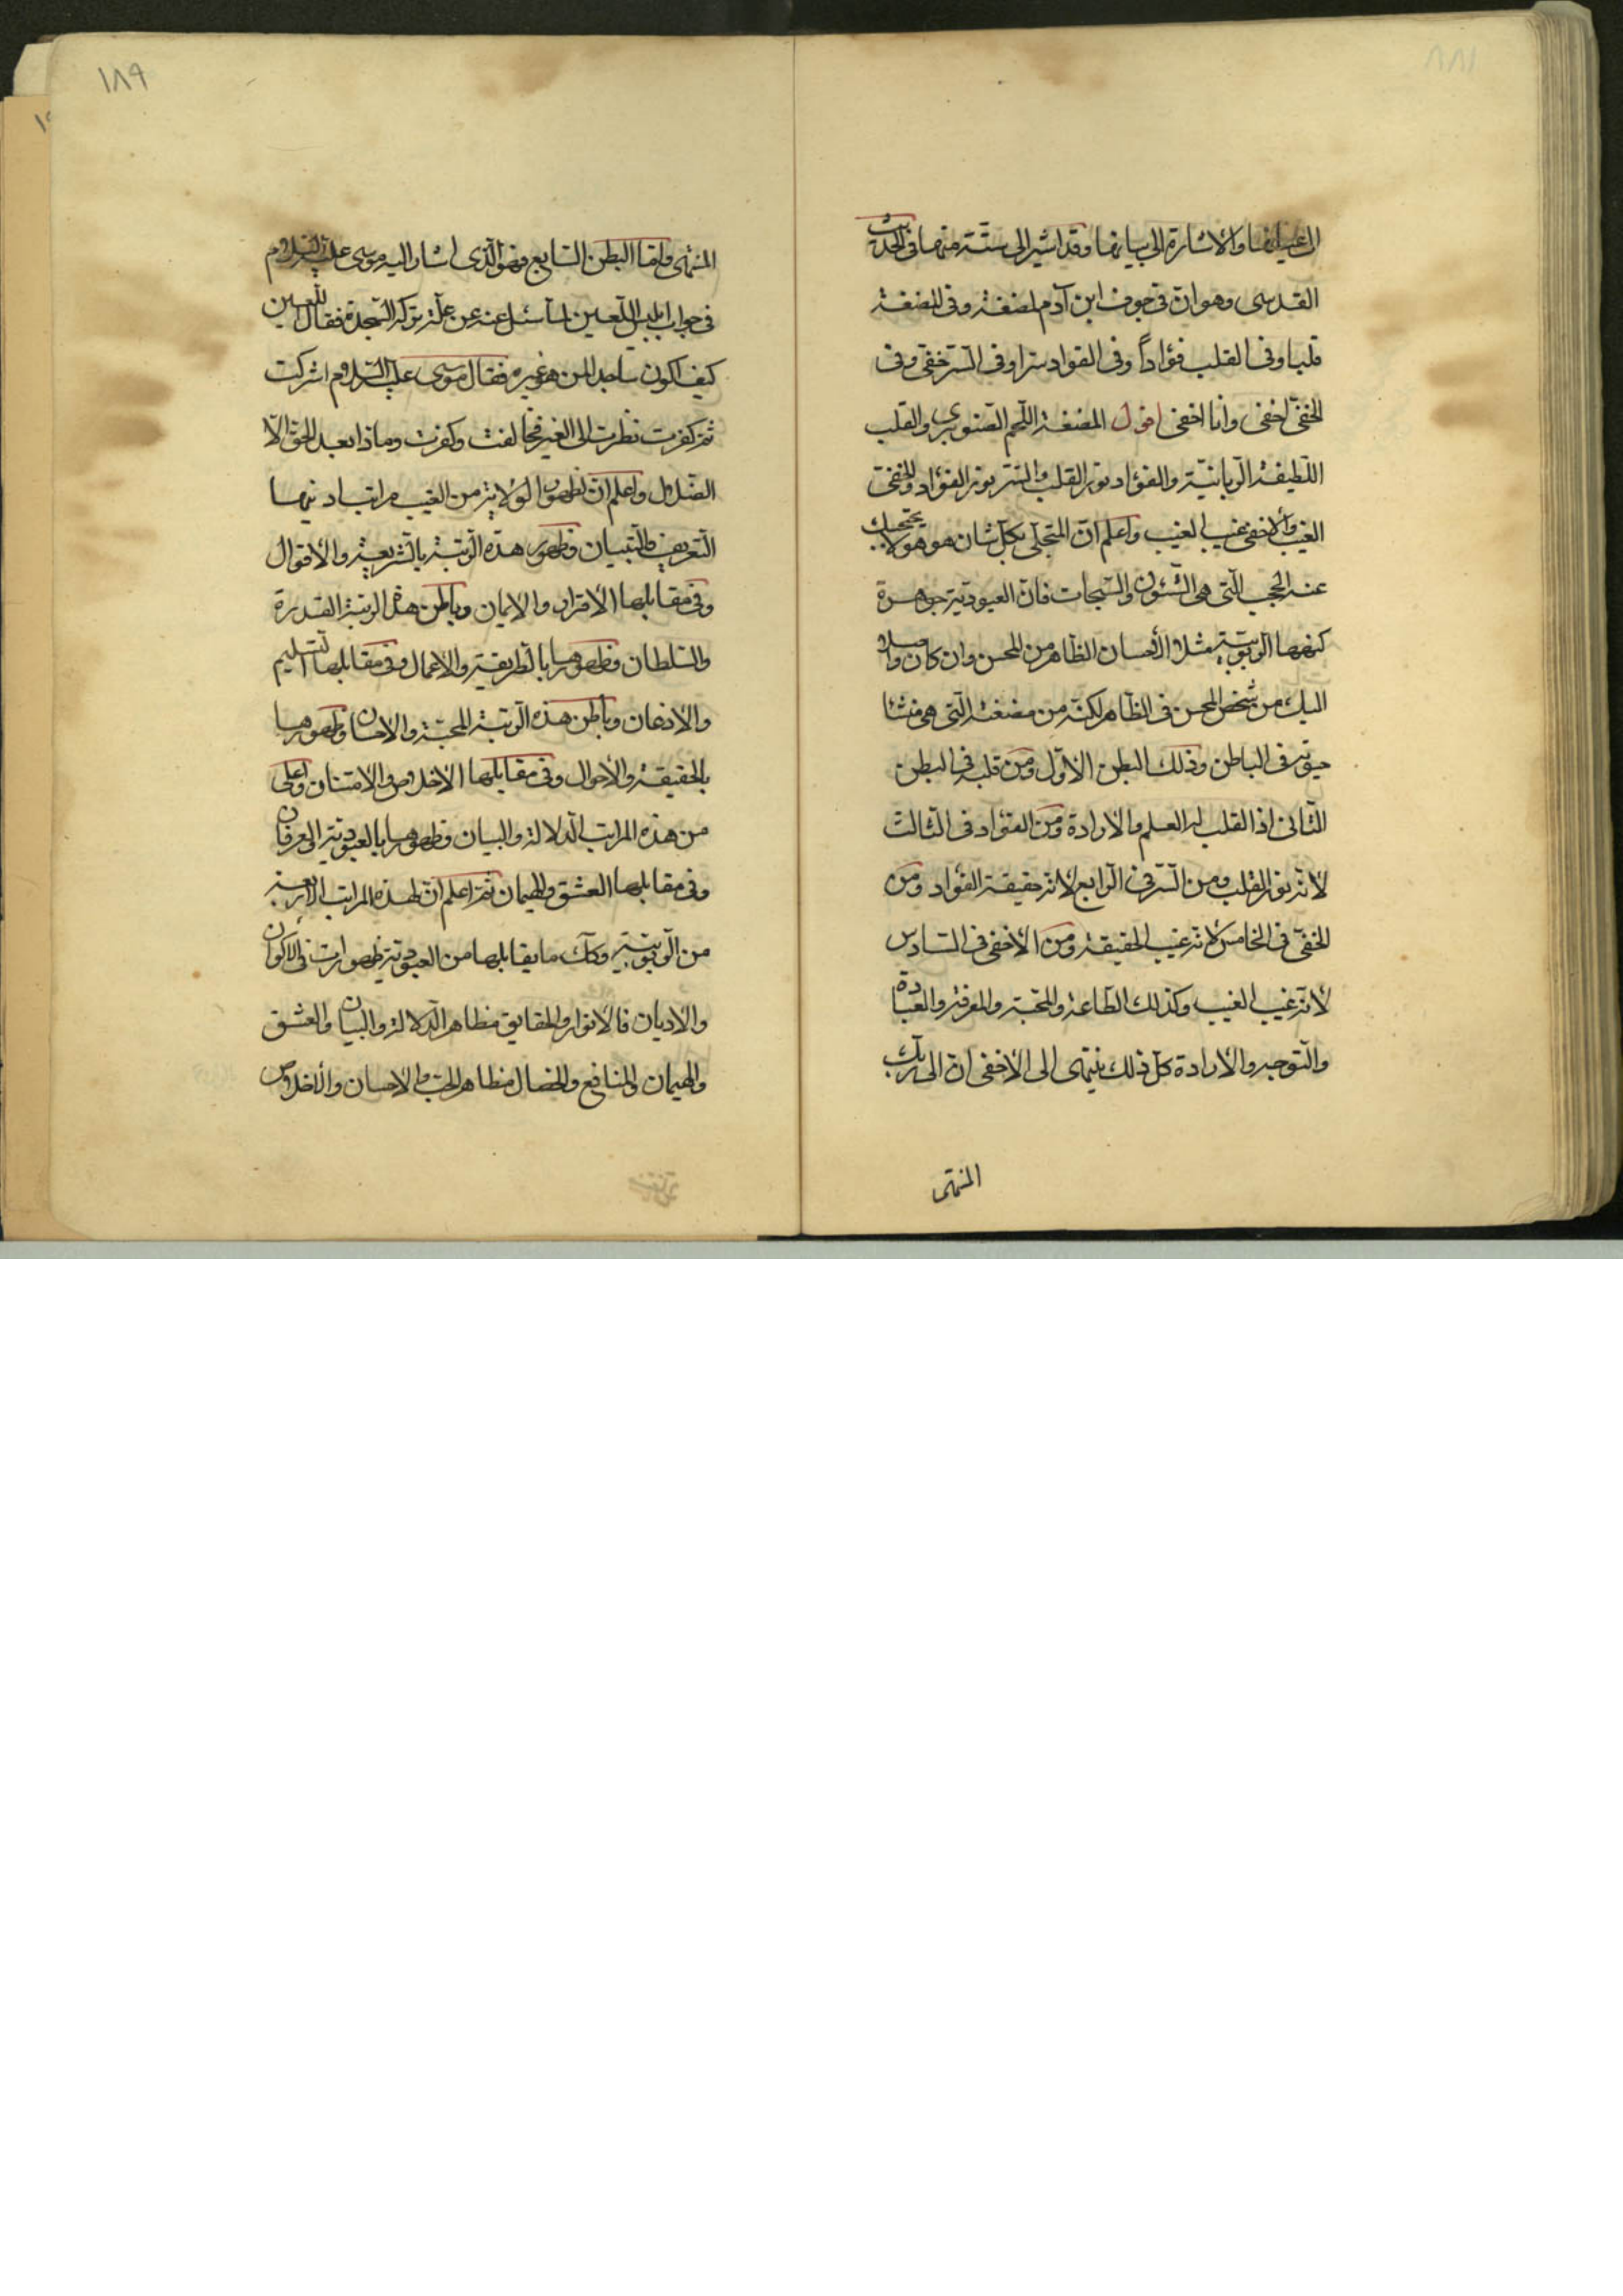 اعيانها والاشارة الى بيانها وقد اشير الى ستة منها فى الحديث
القدسى وهو ان فى جوف ابن آدم لمضغة وفى المضغة
قلبا وفى القلب فؤاداً وفى الفواد سترا وفى السّر خفىّ وفى
الخفىّ اخفى وانا اخفى اقول المضغة اللّحم الصّنوبرى والقلب
اللّطيفة الرّبانيّة والفؤاد نور القلب والسّر نور الفؤاد والخفىّ
الغيب والاخفى غيب الغيب واعلم انّ المتجلّى بكلّ شان هو هو لا يحتجبك
عنه الحجب الّتى هى الشّئون والسّبحات فانّ العبوديّة جوهرة
كنهها الرّبوبيّة مثلا الأحسان الظّاهر من المحسن وان كان واصلا
اليك من شخص المحسن فى الظّاهر لكنّه من مضغته الّتى هى منشا
حيوته فى الباطن وذلك البطن الاوّل ومن قلبه فى البطن
الثّانى اذ القلب له العلم والارادة ومن الفؤاد فى الثّالث
لانّه نور القلب ومن السّر فى الرّابع لانّه حقيقة الفؤاد ومن
الخفىّ فى الخامس لانّه غيب الحقيقة ومن الأخفى فى السّادس
لانّه غيب الغيب وكذلك الطّاعة والمحبّة والمعرفة والعبادة
والتّوجه والارادة كلّ ذلك ينتهى الى الاخفى انّ الى ربّك
المنتهى
١٨٩
المنتهى وامّا البطن السّابع فهو الّذى اشار اليه موسى عليه السّلام
فى جواب ابليس اللّعين لما سئل عنه عن علّة تركه السّجدة فقال اللّعين
كيف اكون ساجدا لمن هو غيره فقال موسى عليه السّلام اشركت
ثمّ كفرت نظرت الى الغير فخالفت وكفرت وماذا بعد الحقّ الّا
الضّلال واعلم انّ لظهور الولاية من الغيب مراتب ادنيها
التّعريف والتّبيان وظهور هذه الرّتبة بالشّريعة والأقوال
وفى مقابلها الأقرار والايمان وباطن هذه الرتبة القدرة
والسّلطان وظهورها بالطّريقة والاعمال وفى مقابلها التّسليم
والأذعان وباطن هذه الرّتبة المحبّة والاحسان وظهورها
بالحقيقة والأحوال وفى مقابلها الأخلاص والامتنان واعلى
من هذه المراتب الدّلالة والبيان وظهورها بالعبوديّة والعرفان
وفى مقابلها العشق والهيمان ثمّ اعلم انّ لهذه المراتب الأربعة
من الرّبوبيّة وكلّ ما يقابلها من العبوديّة ظهورات فى الأكوان
والاديان فالأنوار والحقايق مظاهر الدّلالة والبيان والعشق
والهيمان والمنافع والخصال مظاهر الحبّ والاحسان والأخلاص